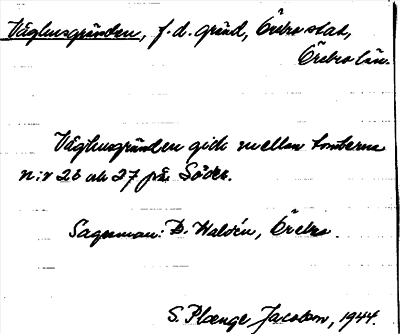 Våghusgränden, f.d. gränd, Örebro stad,
Örebro län.
Våghusgränden gick mellan tomterna
n:r 26 och 27 på Söder.
Sagesman: D. Waldén, Örebro.
S. Plænge Jacobson, 1944.